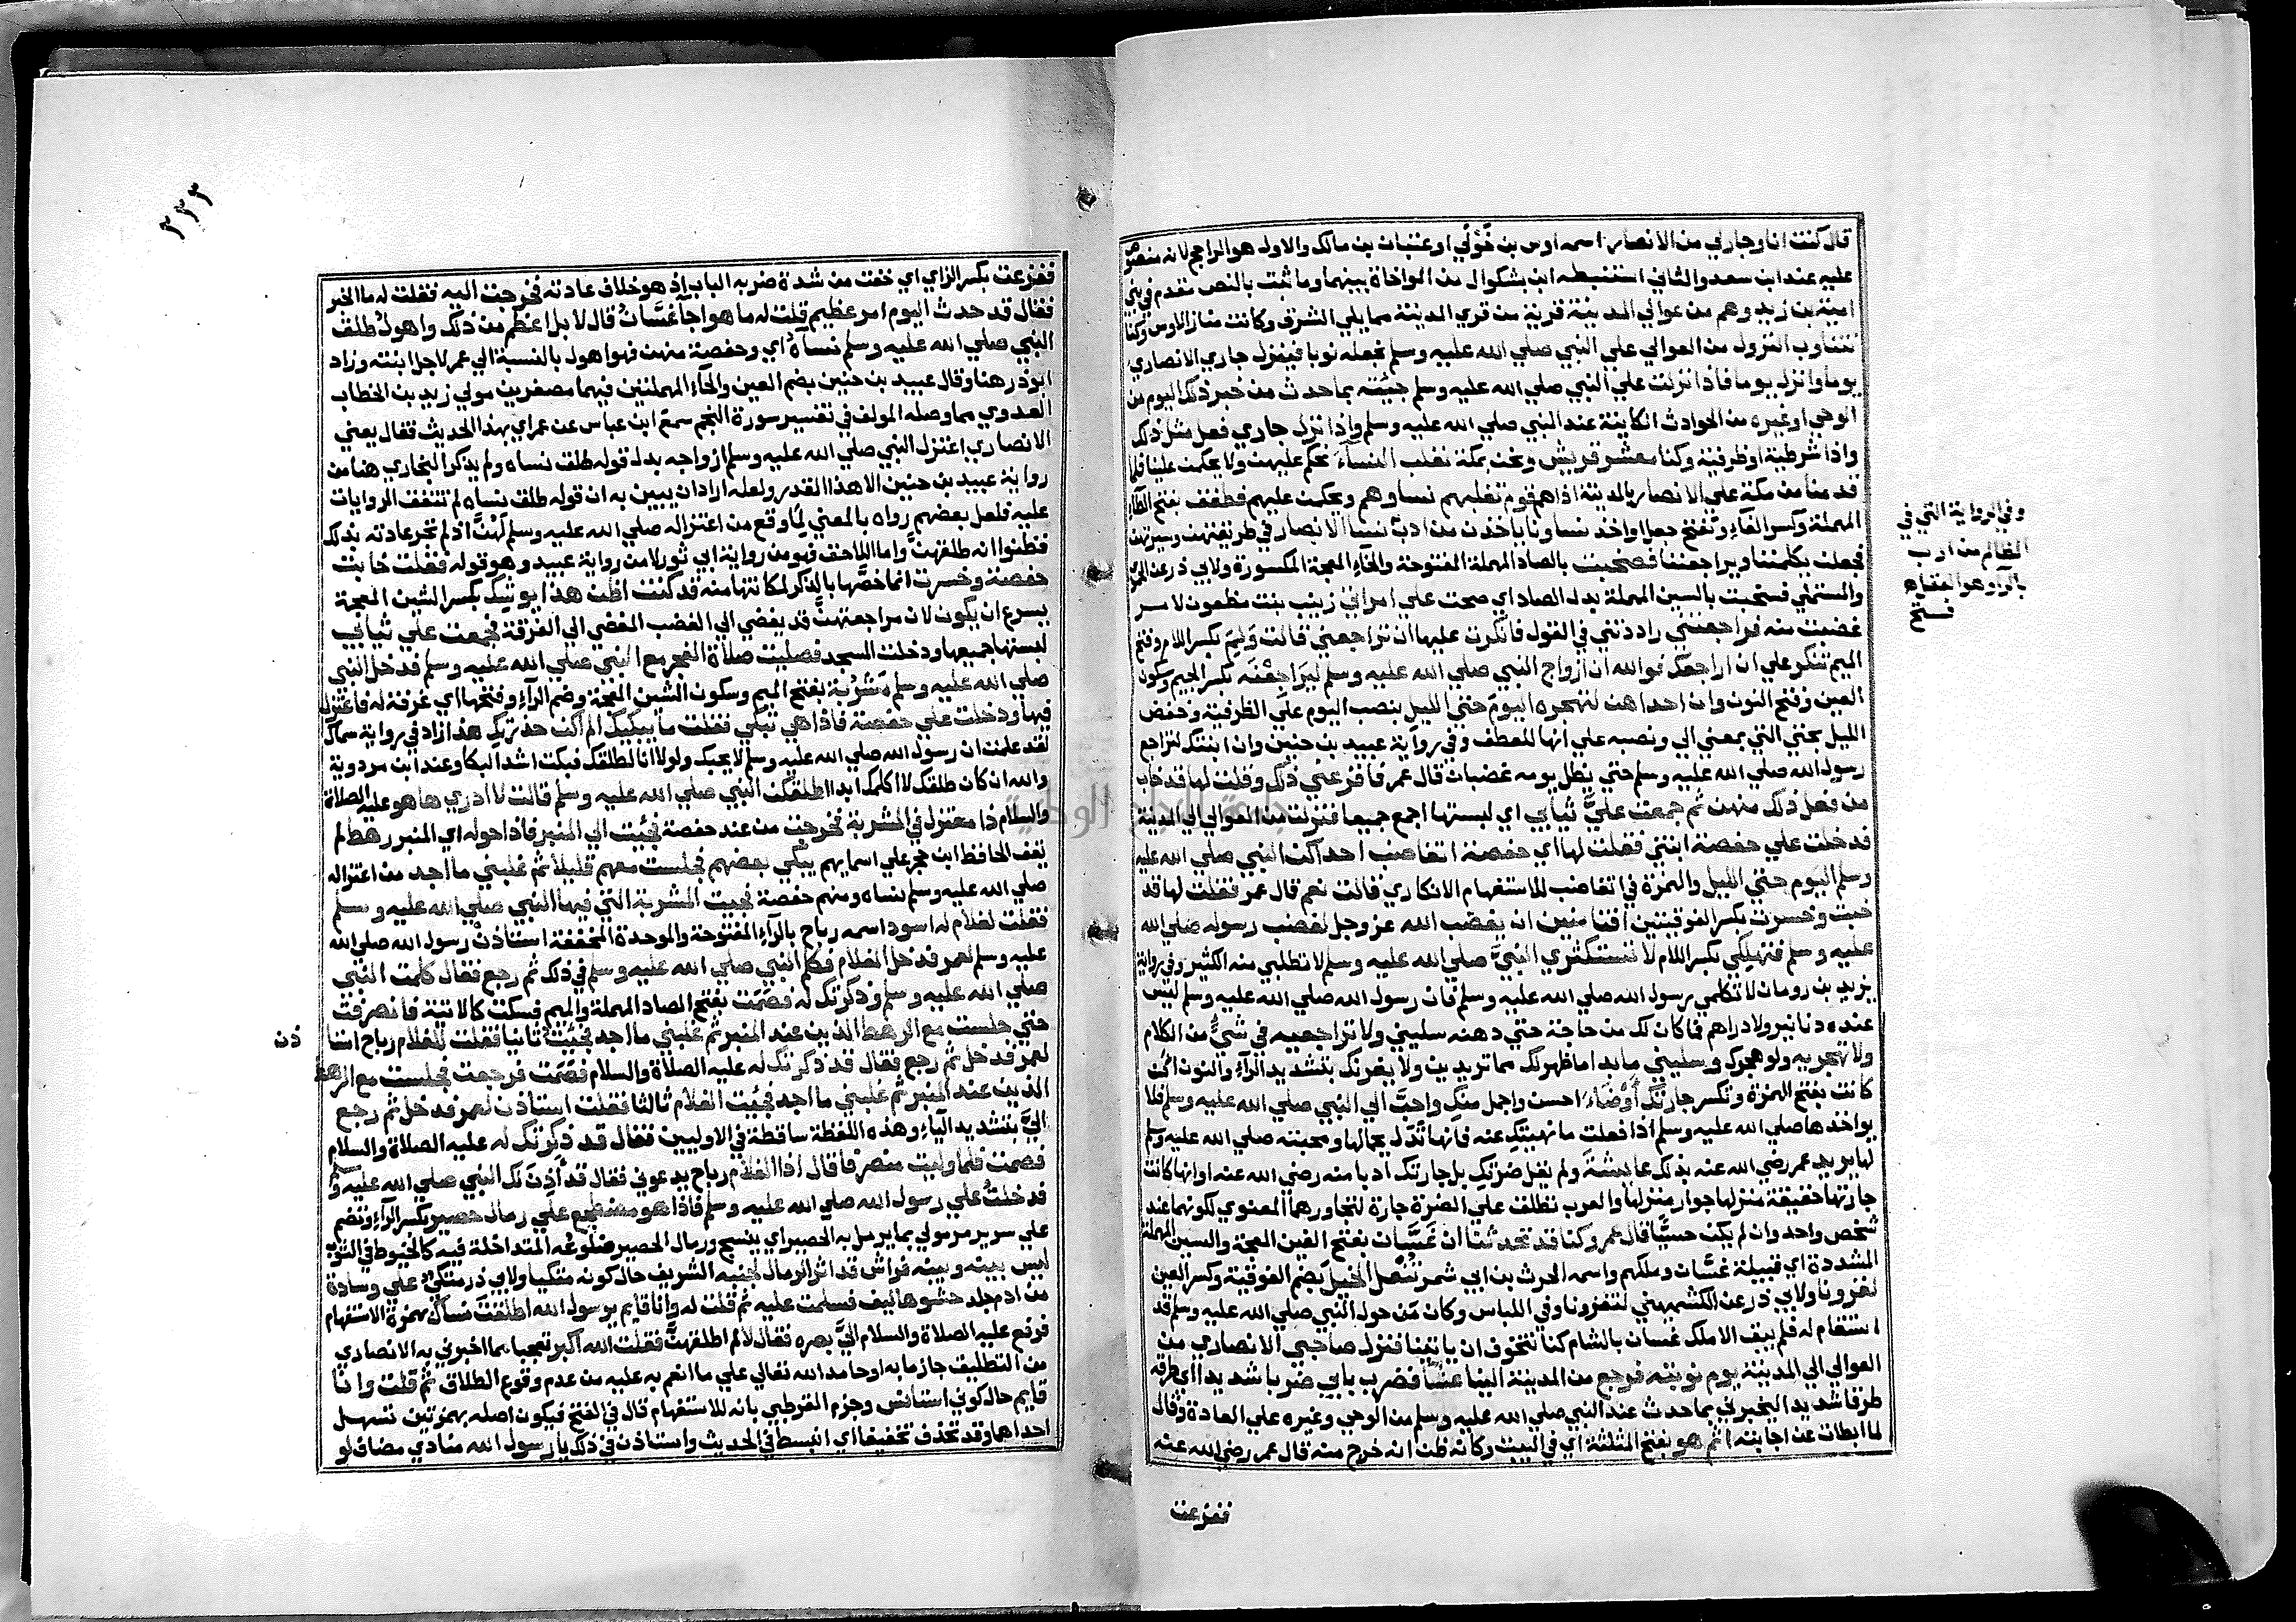 قال كنت انا وجار لي من الانصار اسمه اوس بن خَوْلي او عتبان بن مالك والاول هو الراجح لانه منصوص
عليه عند ابن سعد والثاني استنبطه ابن بشكوال من المواخاة بينهما وما ثبت بالنص مقدم في بني
امية بن زيد وهم من عوالي المدينة قرية من قري المدينة مما يلي الشرق وكانت منازل الاوس وكنا
نتناوب النزول من العوالي علي النبي صلي الله عليه وسلم نجعله نوبا فينزل جاري الانصاري
يوما وانزل يوما فاذا نزلت علي النبي صلي الله عليه وسلم جيته بما حدث من خبر ذلك اليوم من
الوحي او غيره من الحوادث الكاينة عند النبي صلي الله عليه وسلم واذا نزل جاري فعل مثل ذلك
واذا شرطية او ظرفية وكنا معشر قريش ونحن بمكة نغلب النساء نحكم عليهن ولا يحكمن علينا فلما
قدمنا من مكة علي الانصار بالمدينة اذا هم قوم تغلبهم نساوهم ويحكمن عليهم فطفق بفتح الطاء
المهملة وكسر الفاء وتفتح جعل او اخذ نساونا ياخذن من ادب نسا الانصار في طريقتهن وسيرتهن
فجعلن يكلمننا ويراجعننا فصخبت بالصاد المهملة المفتوحة والخاء المعجمة المكسورة ولابي ذر عن الحموي
والمستملي فسخبت بالسين المهملة بدل الصاد اي صحت علي امراتي زينب بنت مظعون لامر
غضبت منه فراجعتني راددتني في القول فانكرت عليها ان تراجعني قالت وَلِمَ بكسر اللام وفتح
الميم تنكر علي ان اراجعك فوالله ان ازواج النبي صلي الله عليه وسلم ليراجعْنَه بكسر الجيم وسكون
العين وفتح النون وان احداهن لتهجره اليومَ حتي الليل بنصب اليوم علي الظرفية وخفض
الليل بحتي التي بمعني الي ونصبه علي انها للعطف وفي رواية عبيد بن حنين وان ابنتك لتراجع
رسول الله صلي الله عليه وسلم حتي يظل يومه غضبان قال عمر فافزعني ذلك وقلت لها قد خاب
من فعل ذلك منهن ثم جمعت عليَّ ثيابي اي لبستها اجمع جميعا فنزلت من العوالي الي المدينة
فدخلت علي حفصة ابنتي فقلت لها اي حفصة اتغاضب احداكن النبي صلي الله عليه
وسلم اليوم حتي الليل والهمزة في اتغاضب للاستفهام الانكاري قالت نعم قال عمر فقلت لها قد
خبت وخسرت بكسر الفوقيتين افتامنين ان يغضب الله عز وجل لغضب رسوله صلي الله
عليه وسلم فتهلِكي بكسر اللام لا تستكثري النبيَّ صلي الله عليه وسلم لا تطلبي منه الكثير وفي رواية
يزيد بن رومان لا تكلمي رسول الله صلي الله عليه وسلم فان رسول الله صلي الله عليه وسلم ليس
عنده دنانير ولا دراهم فما كان لك من حاجة حتي دهنه سليني ولا تراجعيه في شيءٍ من الكلام
ولا تهجريه ولو هجرك وسليني ما بدا ما ظهر لك مما تريدين ولا يغرنك بتشديد الراء والنون ان
كانت بفتح الهمزة وتكسر جارتك أوْضَاءَ احسن واجمل منك واحبَّ الي النبي صلي الله عليه وسلم فلا
يواخذها صلي الله عليه وسلم اذا فعلت ما نهيتك عنه فانها تدل بجمالها ومحبته صلي الله عليه وسلم
لها يريد عمر رضي الله عنه بذلك عايشة ولم يقل ضرتك بل جارتك ادبا منه رضي الله عنه او انها كانت
جارتها حقيقة منزلها جوار منزلها والعرب تطلق علي الضرة جارة لتجاورهما المعنوي لكونهما عند
شخص واحد وان لم يكن حسيًّا قال عمر وكنا قد تحدثنا ان غَسَّان بفتح الغين المعجمة والسين المهملة
المشددة اي قبيلة غسَّان وملكهم واسمه الحرث بن ابي شمر تُنعِل الخيل بضم الفوقية وكسر العين
لغزونا ولابي ذر عن الكشميهني لتغزونا وفي اللباس وكان مَن حول النبي صلي الله عليه وسلم قد
استقام له فلم يبق الا ملك غسان بالشام كنا نتخوف ان ياتينا فنزل صاحبي الانصاري من
العوالي الي المدينة يوم نوبته فرجع من المدينة الينا عشاً فضرب بابي ضربا شديدا اي طرقه
طرقا شديدا ليخبرني بما حدث عند النبي صلي الله عليه وسلم من الوحي وغيره علي العادة وقال
لما ابطات عن اجابته أثَم هو بفتح المثلثة اي في البيت وكانه ظن انه خرج منه قال عمر رضي الله عنه
ففزعت
وفي الرواية التي في
المظالم من ارب
بالراء وهو العقل اهـ
فتح
٢٣٣
ففزعت بكسر الزاي اي خفت من شدة ضربه الباب اذ هو خلاف عادته فخرجت اليه فقلت له ما الخبر
فقال قد حدث اليوم امر عظيم قلت له ما هو اجآ غسَّان قال لا بل اعظم من ذلك واهول طلق
النبي صلي الله عليه وسلم نساه اي وحفصة منهن فهو اهول بالنسبة الي عمر لاجل ابنته وزاد
ابوذر هنا وقال عبيد بن حنين بضم العين والحاء المهملتين فيهما مصغرين مولي زيد بن الخطاب
العدوي مما وصله المولف في تفسير سورة النجم سمع ابن عباس عن عمر اي بهذا الحديث فقال يعني
الانصاري اعتزل النبي صلي الله عليه وسلم ازواجه بدل قوله طلق نساه ولم يذكر البخاري هنا من
رواية عبيد بن حنين الا هذا القدر ولعله اراد ان يبين به ان قوله طلق نساه لم تتفق الروايات
عليه فلعل بعضهم رواه بالمعني لِمَا وقع من اعتزاله صلي الله عليه وسلم لهنَّ اذ لم تجر عادته بذلك
فظنوا انه طلقهن واما اللاحق فهو من رواية ابي ثور لا من رواية عبيد وهو قوله فقلت خابت
حفصة وخسرت انما خصَّها بالذكر لمكانتها منه قد كنت اظن هذا يوشِك بكسر الشين المعجمة
يسرع ان يكون لان مراجعتهنَّ قد يفضي الي الغضب المفضي الي الفرقة فجمعت علي ثيابي
لبستها جميعها ودخلت المسجد فصليت صلاة الفجر مع النبي صلي الله عليه وسلم فدخل النبي
صلي الله عليه وسلم مَشْرُبة بفتح الميم وسكون الشين المعجمة وضم الراء وفتحها اي غرفة له فاعتزل
فيها ودخلت علي حفصة فاذا هي تبكي فقلت ما يبكيك الم اكن حذرتك هذا زاد في رواية سماك
لقد علمت ان رسول الله صلي الله عليه وسلم لا يحبك ولولا انا لطلقك فبكت اشد البكا وعند ابن مردوية
والله ان كان طلقك لا اكلمك ابدا اطلقكن النبي صلي الله عليه وسلم قالت لا ادري ها هو عليه الصلاة
والسلام ذا معتزل في المشربة فخرجت من عند حفصة فجئت الي المنبر فاذا حوله اي المنبر رهط لم
يقف الحافظ ابن حجر علي اسمايهم يبكي بعضهم فجلست معهم قليلا ثم غلبني ما اجد من اعتزاله
صلي الله عليه وسلم نساه ومنهم حفصة فجيت المشربة التي فيها النبي صلي الله عليه وسلم
فقلت لغلام له اسود اسمه رباح بالراء المفتوحة والموحدة المخففة استاذن رسول الله صلي الله
عليه وسلم لعمر فدخل الغلام فكلم النبي صلي الله عليه وسلم في ذلك ثم رجع فقال كلمت النبي
صلي الله عليه وسلم وذكرتك له فصَمَت بفتح الصاد المهملة والميم فسكت كالاتية فانصرفت
حتي جلست مع الرهط الذين عند المنبر ثم غلبني ما اجد فجئت ثانيا فقلت للغلام رباح استا
ذن
لعمر فدخل ثم رجع فقال قد ذكرتك له عليه الصلاة والسلام فصَمَت فرجعت فجلست مع الرهط
الذين عند المنبر ثم غلبني ما اجد فجئت الغلام ثالثا فقلت استاذن لعمر فدخل ثم رجع
اليَّ بتشديد الياء وهذه اللفظة ساقطة في الاوليين فقال قد ذكرتك له عليه الصلاة والسلام
فصمت فلما وليت منصرفا قال اذا الغلام رباح يدعوني فقال قد أَذِنَ لك النبي صلي الله عليه وسلم
فدخلتُ علي رسول الله صلي الله عليه وسلم فاذا هو مضطجع علي رمال حصير بكسر الراء وتضم
علي سرير مرمول بما يرمل به الحصير اي ينسج ورمال الحصير ضلوعه المتداخلة فيه كالخيوط في الثوب
ليس بينه وبينه فراش قد اثر الرمال لجنبه الشريف حال كونه متكيا ولابي ذر متكيءٌ علي وسادة
من ادم جلد حشوها ليف فسلمت عليه ثم قلت له وانا قايم يرسول الله اطلقتَ نساك بهمزة الاستفهام
فرفع عليه الصلاة والسلام اليَّ بصره فقال لا لم اطلقهنَّ فقلت الله اكبر تعجبا مما اخبرني به الانصاري
من التطليق جازما به او حامد الله تعالي علي ما انعم به عليه من عدم وقوع الطلاق ثم قلت وانا
قايم حال كوني استانس وجزم القرطبي بانه للاستفهام قال في الفتح فيكون اصله بهمزتين تسهل
احداهما وقد تحذف تخفيفا اي انبسط في الحديث واستاذن في ذلك يا رسول الله منادي مضاف لو